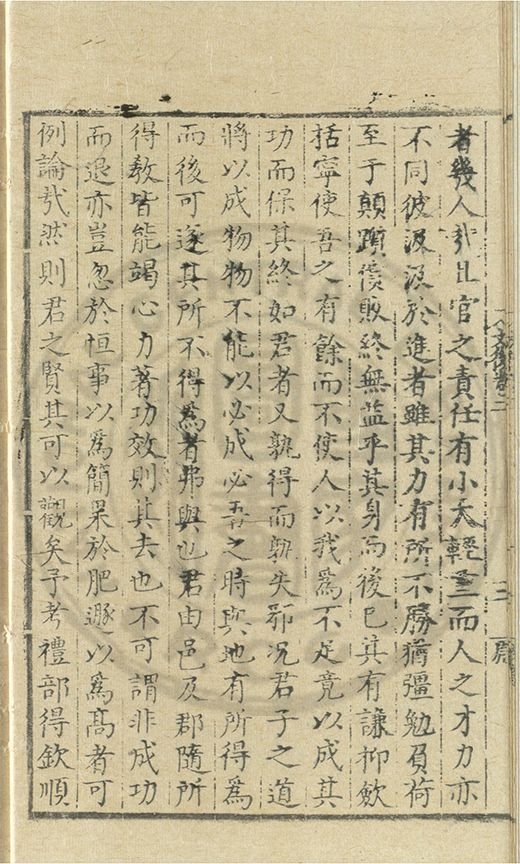 者幾人哉且官之責任有小大輕重而人之才力亦
不同彼汲汲於進者雖其力有所不勝猶彊勉負荷
至于顛躓僨敗終無益乎其身而後已其有謙抑歛
括寧使吾之有餘而不使人以我為不足竟以成其
功而保其終如君者又孰得而孰失邪况君子之道
將以成物物不能以必成必吾之時與地有所得為
而後可遂其所不得為者弗與也君由邑及郡隨所
得教皆能竭心力著功效則其去也不可謂非成功
而退亦豈忽於恒事以為簡果於肥遯以為高者可
例論哉然則君之賢其可以觀矣予考禮部得欽順